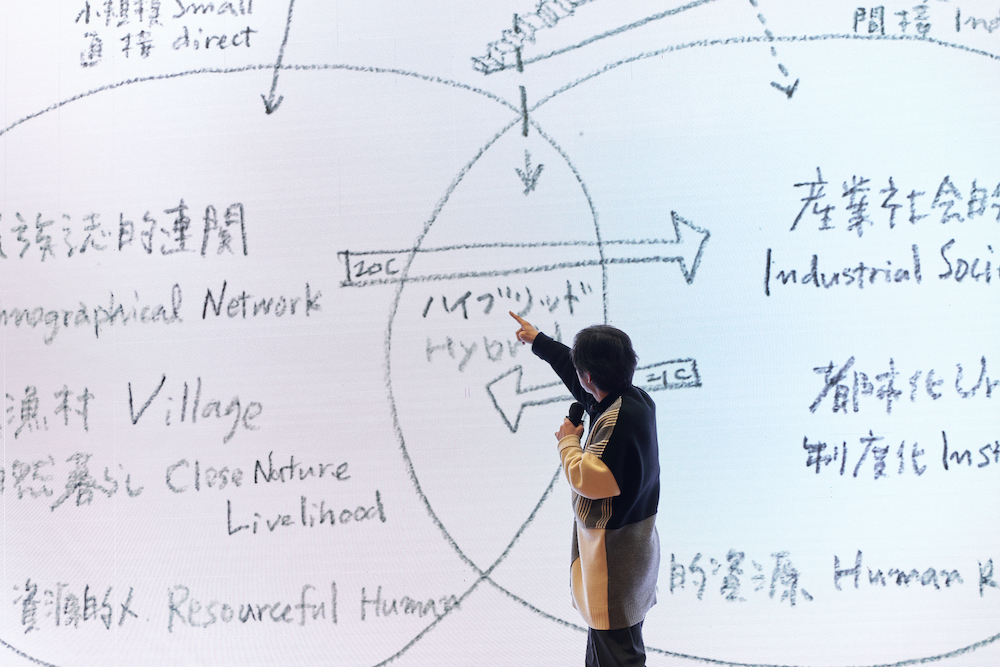 小規模 Small
直接 direct
間接 Ind
族誌的連関
nographical Network
産業社会的
Industrial Soci
20C
ハイブリッド
Hybr
21C
漁村 Village
都市化 Ur
然暮らし Close Nature
Livelihood
制度化 Inst
資源的人 Resourceful Human
的資源 Human R